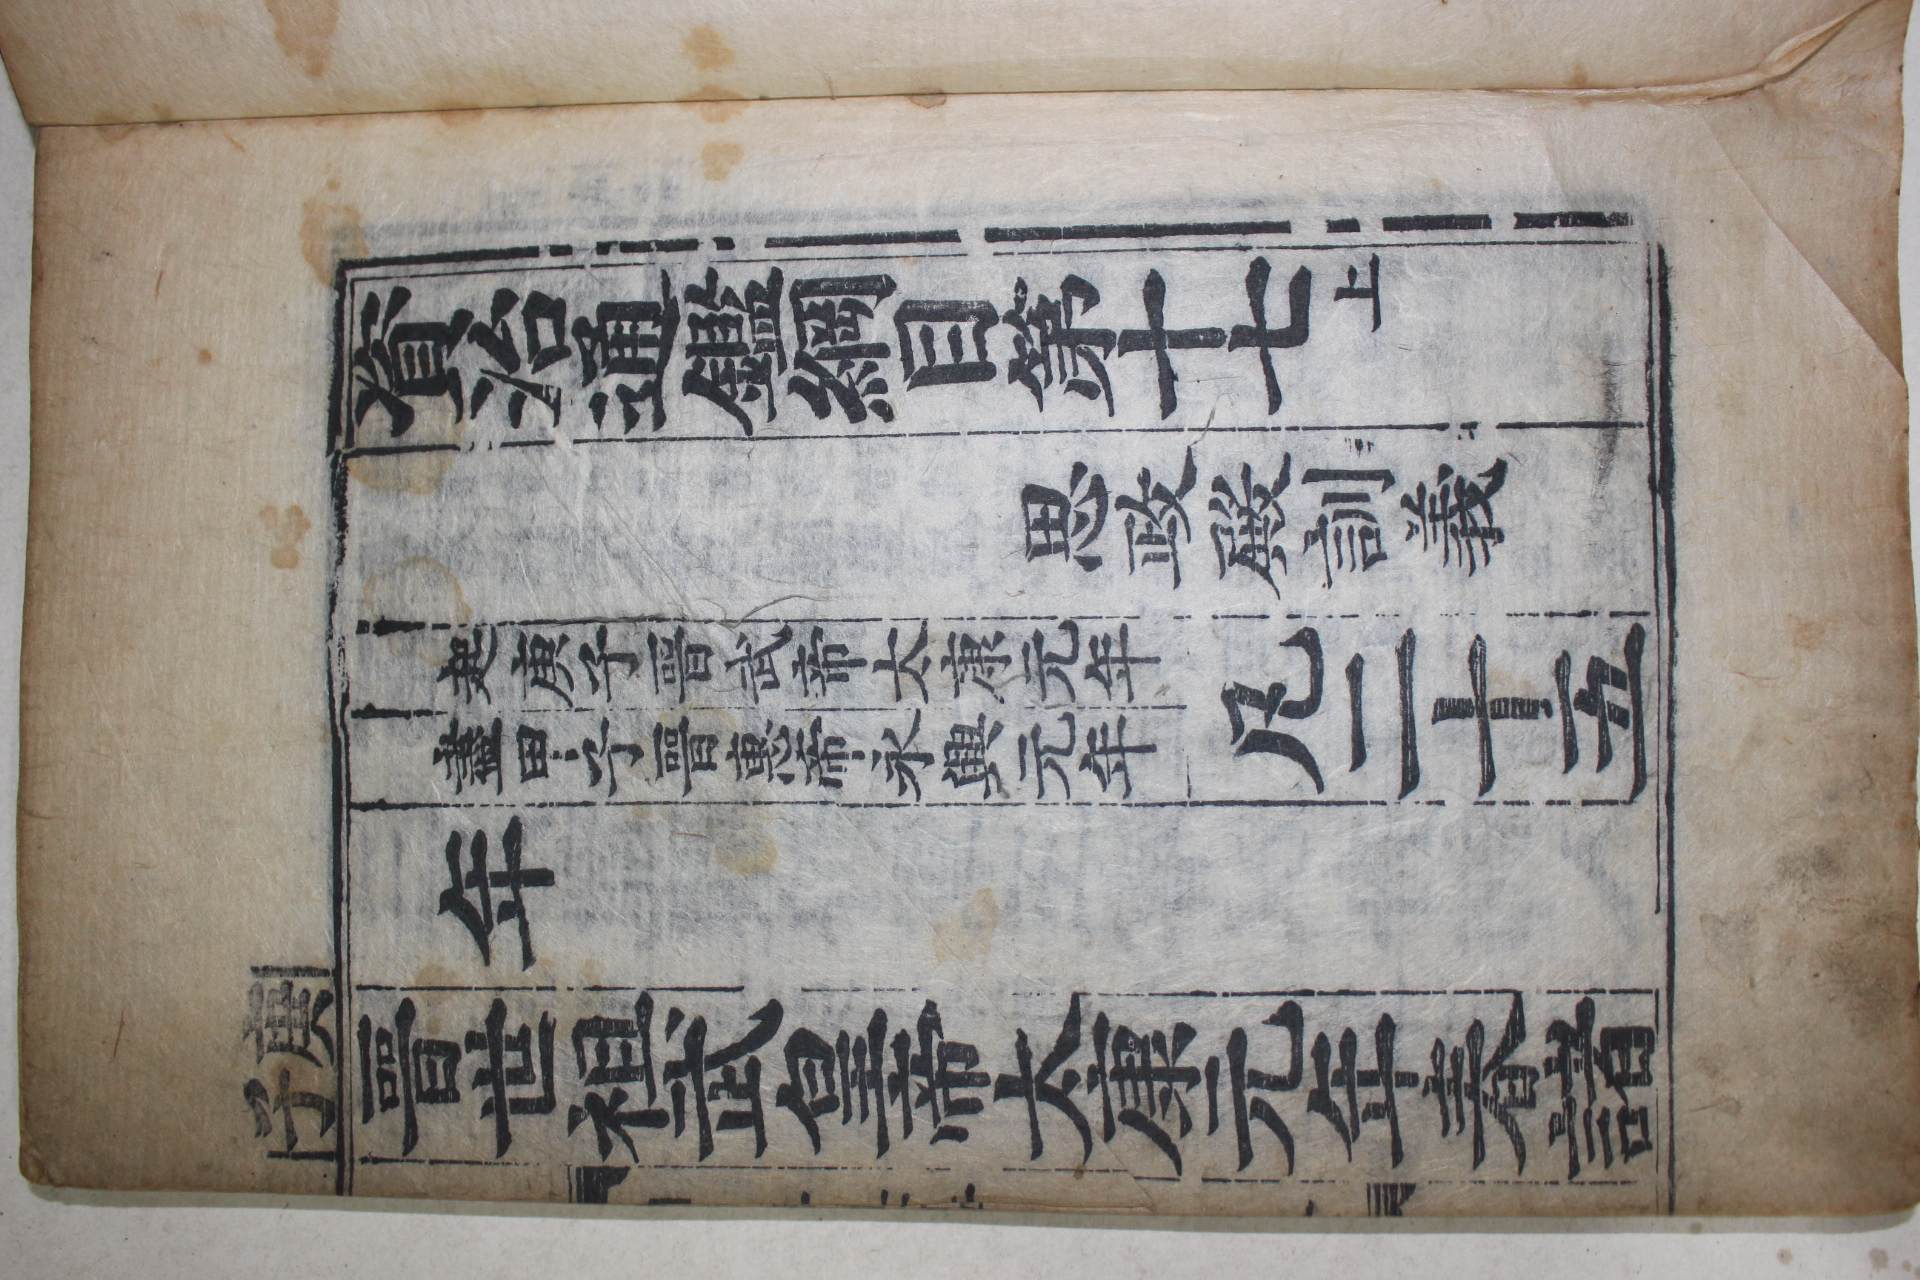 資治通鑑綱目第十七上
思政殿訓義
起庚子晉武帝太康元年
盡甲子晉惠帝永興元年
凡二十五
年
晉世祖武皇帝太康元年春諸